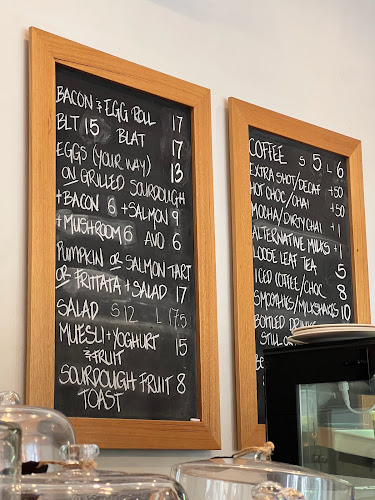 BACON & EGG ROLL 17
BLT 15 BLAT 17
EGGS (YOUR WAY) 13
ON GRILLED SOURDOUGH
+BACON 6 +SALMON 9
+MUSHROOM 6 AVO 6
PUMPKIN OR SALMON TART
OR FRITTATA + SALAD 17
SALAD S 12 L 17.5
MUESLI + YOGHURT 15
& FRUIT
SOURDOUGH FRUIT 8
TOAST
COFFEE S 5 L 6
EXTRA SHOT/DECAF +50
HOT CHOC/CHAI +50
MOCHA/DIRTY CHAI +1
ALTERNATIVE MILKS +1
LOOSE LEAF TEA 5
ICED COFFEE/CHOC 8
SMOOTHIES/MILKSHAKES 10
BOTTLED DRINKS
STILL